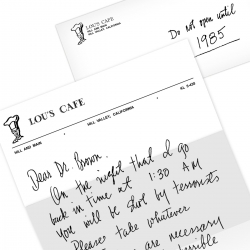 LOU'S CAFE
HILL VALLEY, CALIFORNIA
Do not open until
1985
LOU'S CAFE
HILL AND MAIN
HILL VALLEY, CALIFORNIA
Dear Dr. Brown,
On the night that I go
back in time at 1:30 AM
You will be shot by terrorists
Please take whatever
are necessary